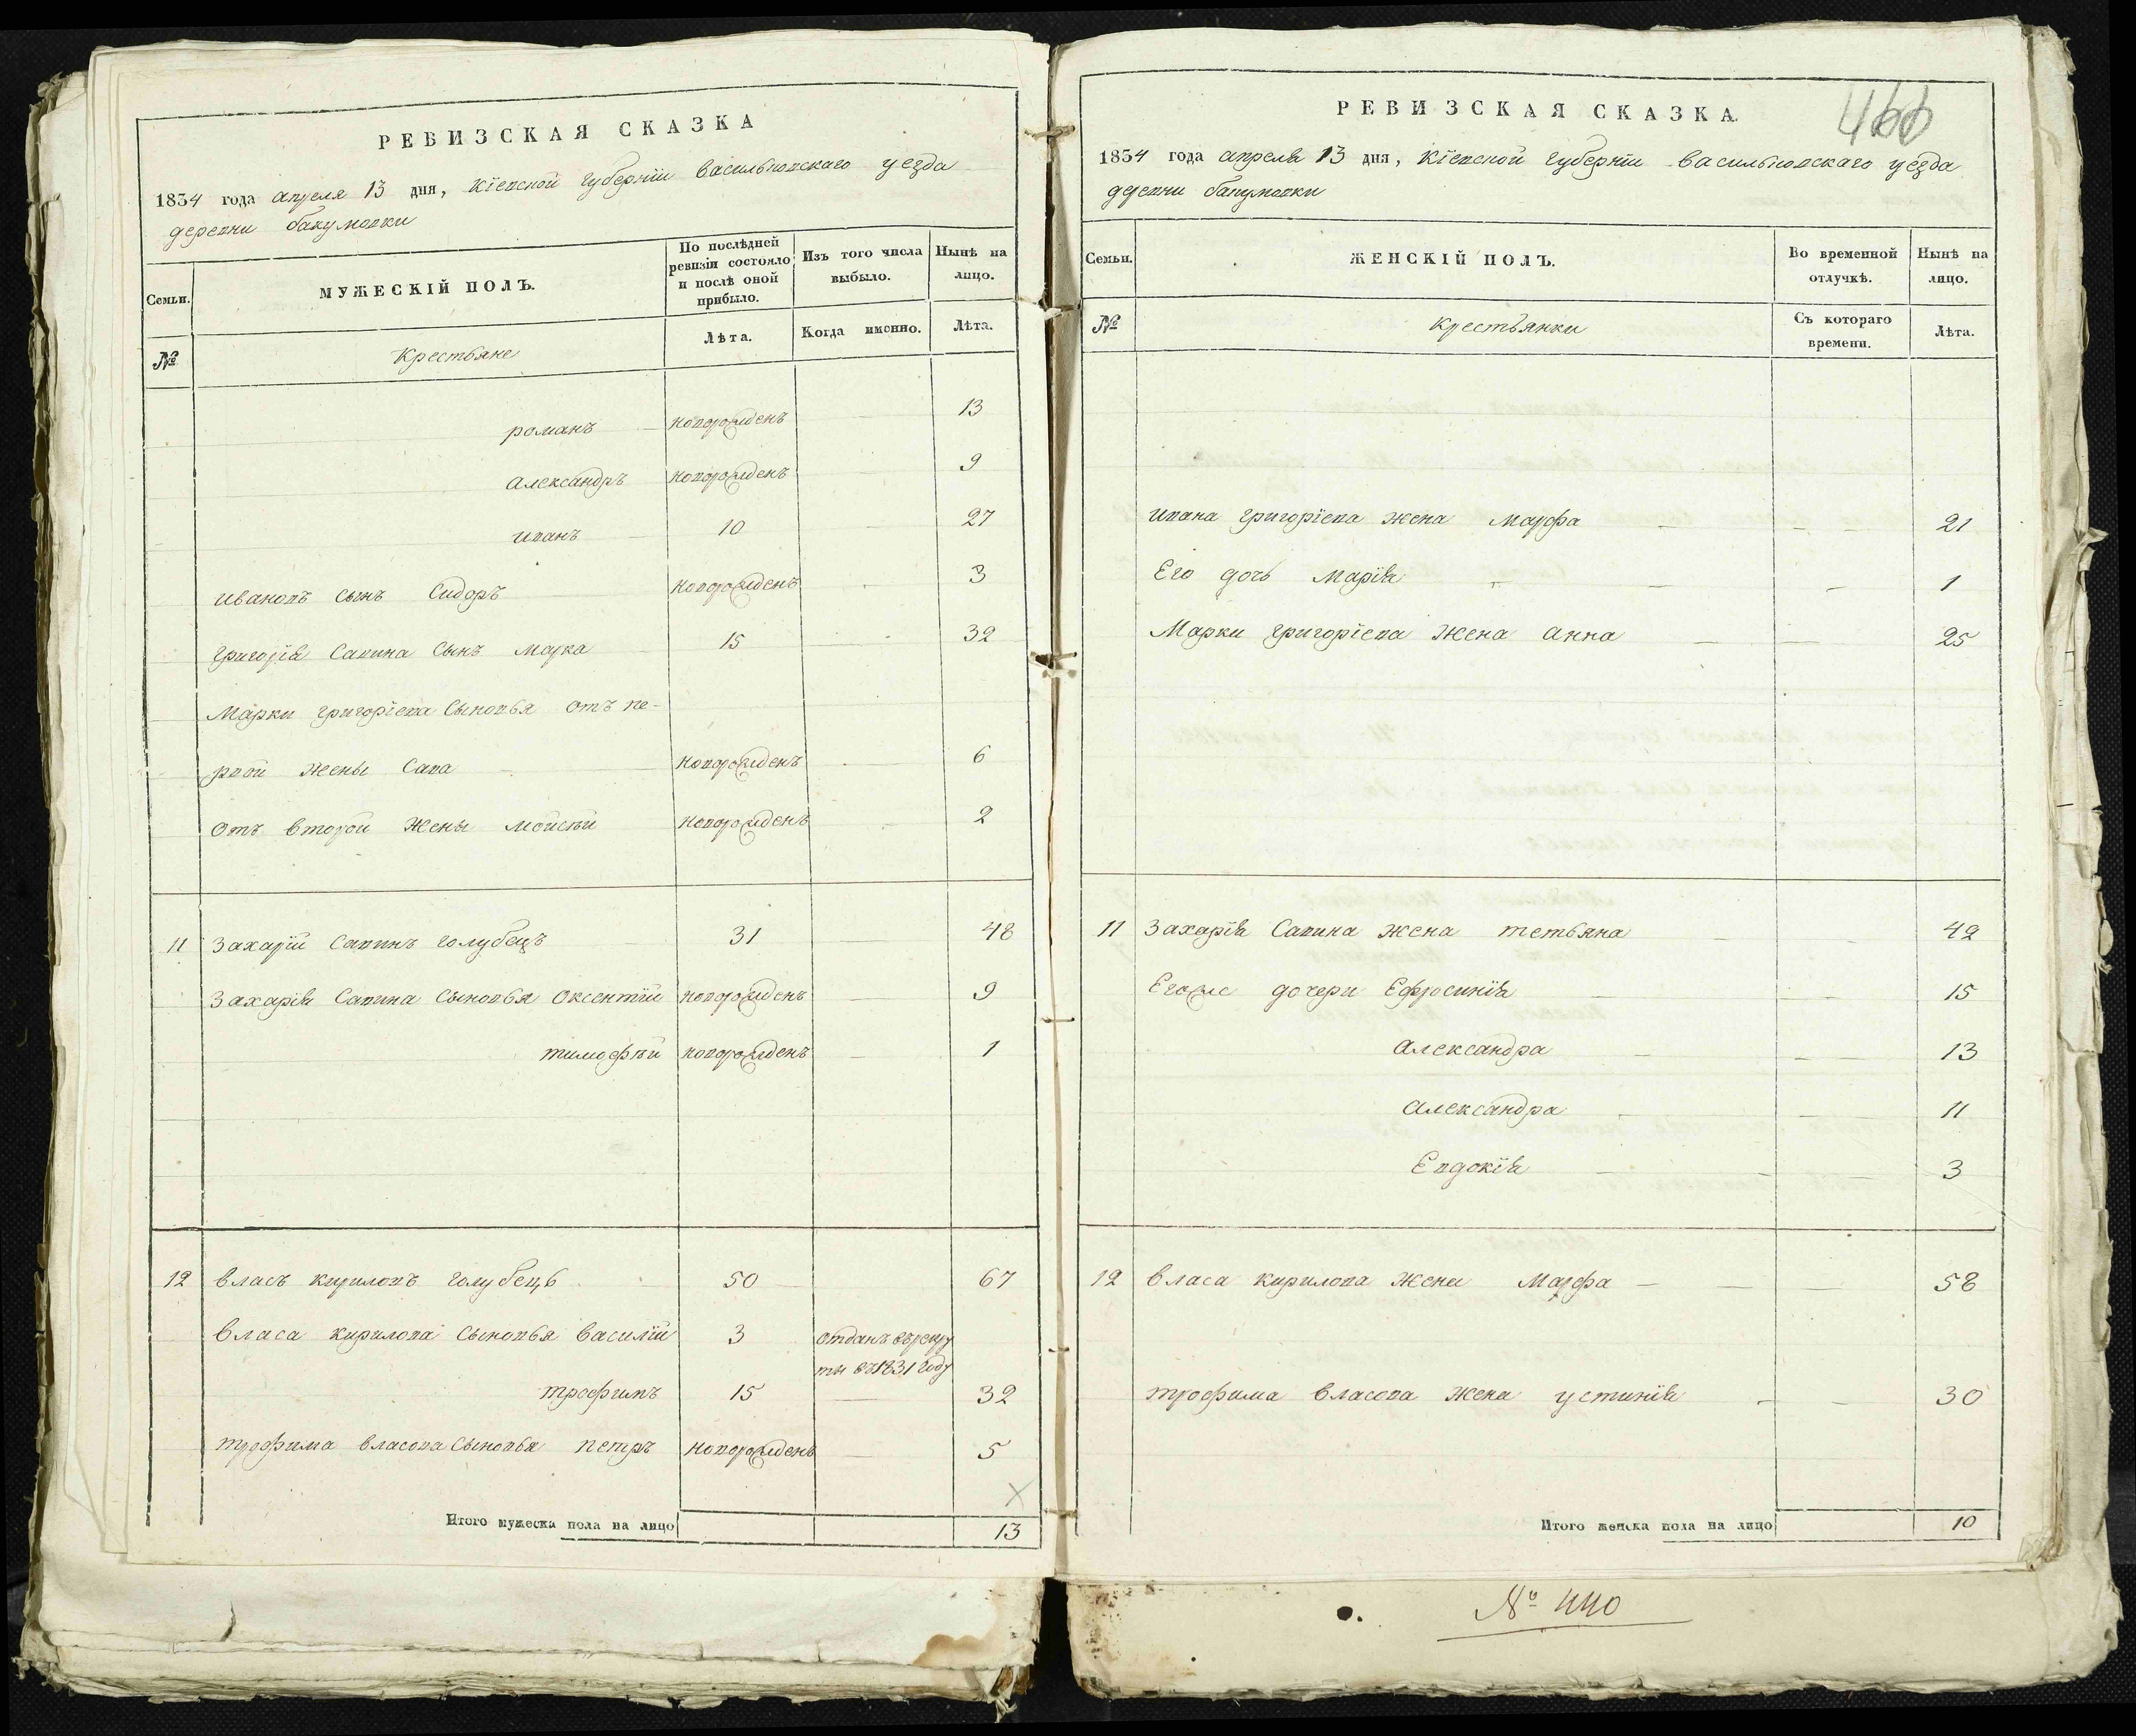 РЕВИЗСКАЯ СКАЗКА
1834 года апреля 13 дня, Кіевской губерніи васильковскаго уезда
деревни бакумовки
Семьи.
МУЖЕСКІЙ ПОЛЪ.
По послѣдней ревизіи состояло и послѣ оной прибыло.
Изъ того числа выбыло.
Нынѣ на лицо.
№
Крестьяне
Лѣта.
Когда именно.
Лѣта.
романъ новорожденъ 13
александръ новорожденъ 9
иванъ 10 27
ивановъ сынъ Сидоръ новорожденъ 3
григорія Савина сынъ марка 15 32
Марки григоріева сыновья отъ пе-
рвой жены Сава новорожденъ 6
отъ второй жены мойсѣй новорожденъ 2
11 Захарій Савинъ голубецъ 31 48
Захарія Савина сыновья Оксентій новорожденъ 9
тимофѣй новорожденъ 1
12 власъ кириловъ голубець 50 67
власа кирилова сыновья василій 3 отданъ въ рекру
ты въ 1831 году
трофимъ 15 32
трофима власова сыновья петръ новорожденъ 5
Итого мужеска пола на лицо 13
466
РЕВИЗСКАЯ СКАЗКА.
1834 года апреля 13 дня, Кіевской губерніи васильковскаго уезда
деревни бакумовки
Семьи.
ЖЕНСКІЙ ПОЛЪ.
Во временной отлучкѣ.
Нынѣ на лицо.
№
Крестьянки
Съ котораго времени.
Лѣта.
ивана григоріева жена марфа 21
Его дочь марія 1
Марки григоріева жена анна 25
11 Захарія Савина жена тетьяна 42
Егоже дочери Ефросинія 15
александра 13
александра 11
Евдокія 3
12 власа кирилова жена Марфа 58
трофима власова жена устинія 30
Итого женска пола на лицо 10
№ 440